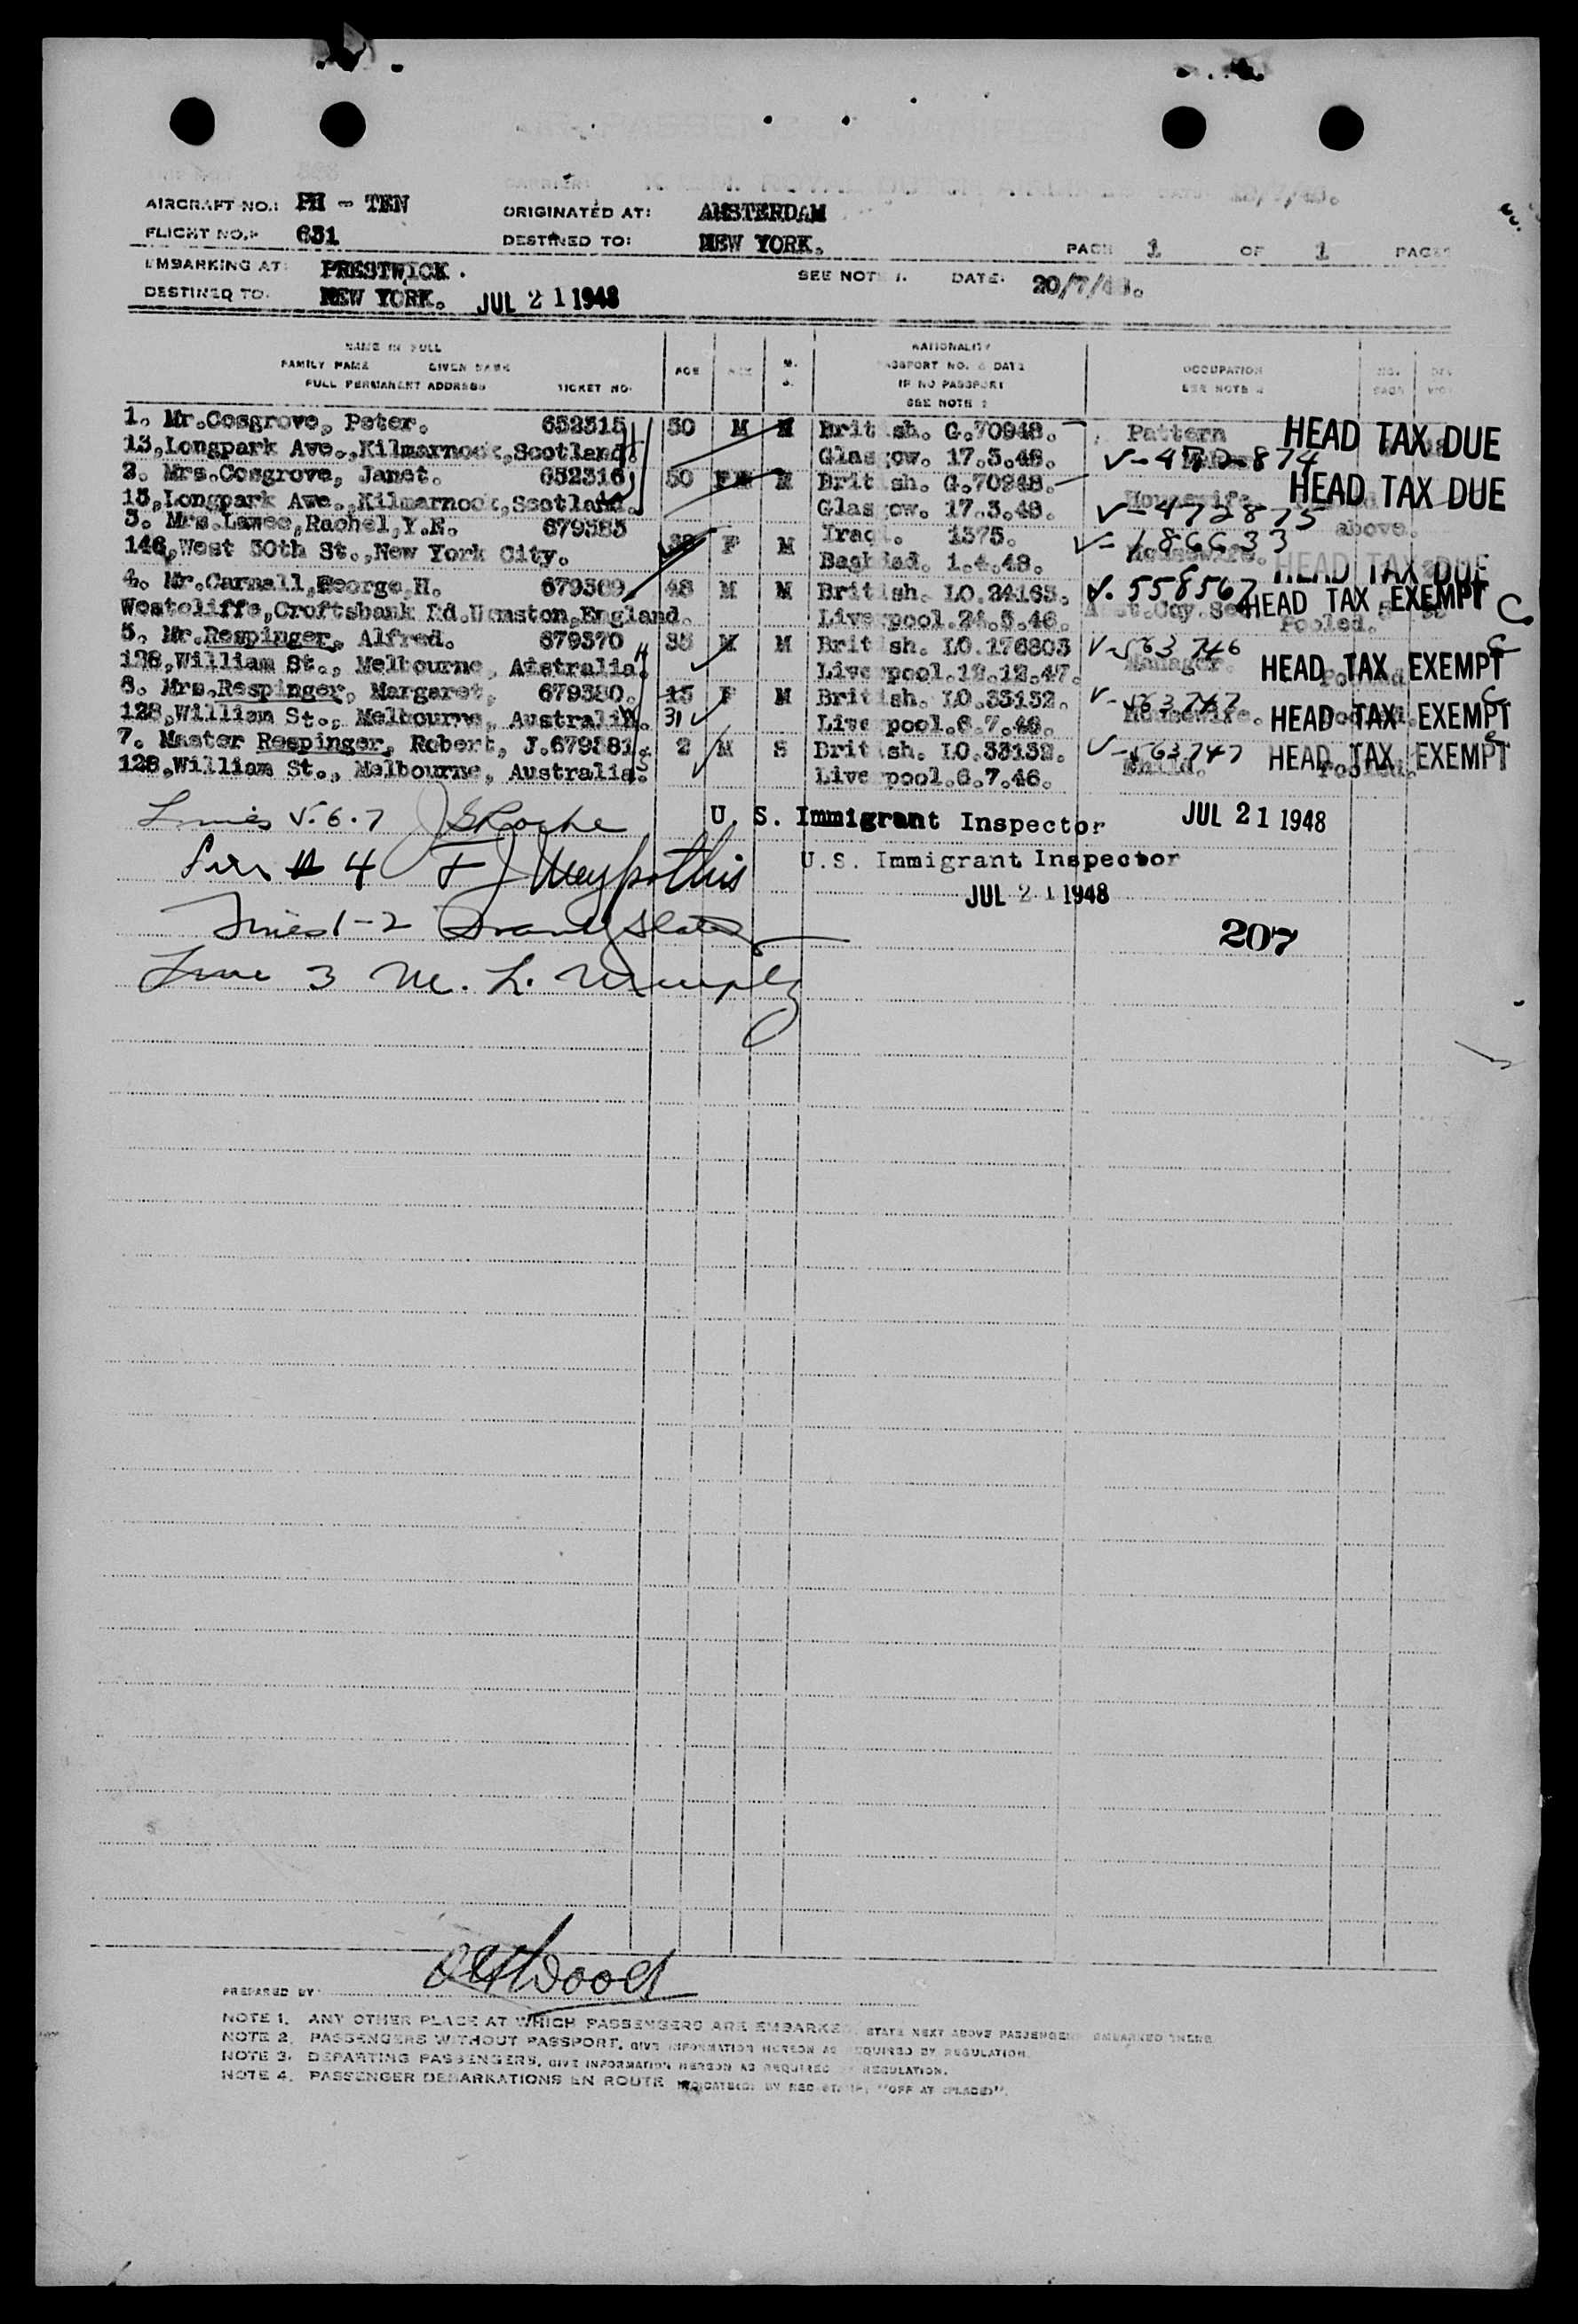 AIRCRAFT NO.: PH - TEN ORIGINATED AT: AMSTERDAM
FLIGHT NO.: 631 DESTINED TO: NEW YORK. PAGE 1 OF 1 PAGES
EMBARKING AT: PRESTWICK. SEE NOTE 1. DATE: 20/7/48.
DESTINED TO. NEW YORK. JUL 21 1948
NAME IN FULL NATIONALITY
FAMILY NAME GIVEN NAME AGE SEX M. PASSPORT NO. & DATE OCCUPATION
FULL PERMANENT ADDRESS TICKET NO. S. IF NO PASSPORT SEE NOTE 2
SEE NOTE 2
1. Mr.Cosgrove, Peter. 652315 50 M M British. G.70948. Pattern HEAD TAX DUE
13,Longpark Ave.,Kilmarnock,Scotland. Glasgow. 17.3.48. V-472874
2. Mrs.Cosgrove, Janet. 652316 50 F M British. G.70948. Housewife HEAD TAX DUE
13,Longpark Ave.,Kilmarnock,Scotland. Glasgow. 17.3.48. V-472875 above.
3. Mrs.Lawee,Rachel,Y.E. 679383 F M Iraq. 1375. V-186633
146,West 30th St.,New York City. Bagdad. 1.4.48. Housewife. HEAD TAX DUE
4. Mr.Carnall,George,H. 679369 48 M M British. LO.24165. V.558567 HEAD TAX EXEMPT C
Westcliffe,Croftsbank Rd.Urmston,England. Liverpool.24.5.46. Pooled.
5. Mr.Respinger, Alfred. 679370 35 M M British. LO.176803 V-563746 C
128,William St., Melbourne, Australia. Liverpool.12.12.47. Manager. HEAD TAX EXEMPT
6. Mrs.Respinger, Margaret. 679380. 15 F M British. LO.33132. V-563747 C
128,William St., Melbourne, Australia. 31 Liverpool.6.7.46. Housewife. HEAD TAX EXEMPT
7. Master Respinger, Robert, J.679381. 2 M S British. LO.33132. V-563747 HEAD TAX EXEMPT
128,William St., Melbourne, Australia. Liverpool.6.7.46. Child. Pooled.
Lines 5.6.7 U. S. Immigrant Inspector JUL 21 1948
4 U.S. Immigrant Inspector
JUL 21 1948
Lines 1-2 207
Line 3 M. L. Murphy
PREPARED BY
NOTE 1. ANY OTHER PLACE AT WHICH PASSENGERS ARE EMBARKED, STATE NEXT ABOVE PASSENGERS EMBARKED THERE
NOTE 2. PASSENGERS WITHOUT PASSPORT, GIVE INFORMATION HEREON AS REQUIRED BY REGULATION.
NOTE 3. DEPARTING PASSENGERS, GIVE INFORMATION HEREON AS REQUIRED BY REGULATION.
NOTE 4. PASSENGER DEBARKATIONS EN ROUTE INDICATE(D) BY RED STAMP, "OFF AT (PLACE)".